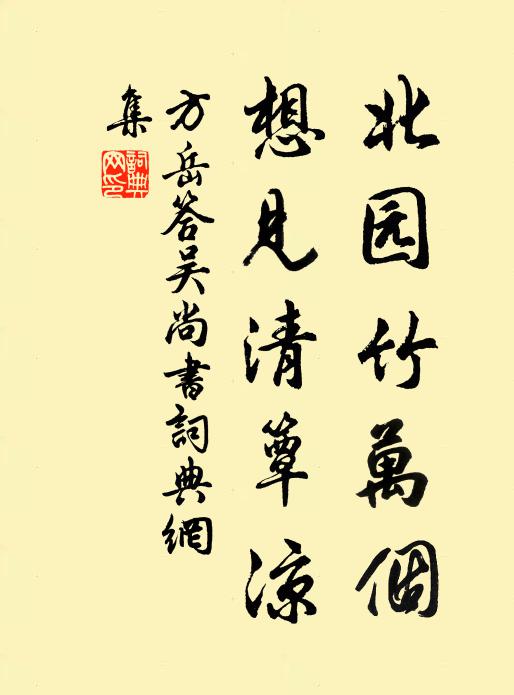 北园竹萬個
想見清簟凉
方岳答吴尚書詞典網
集
詞典網印